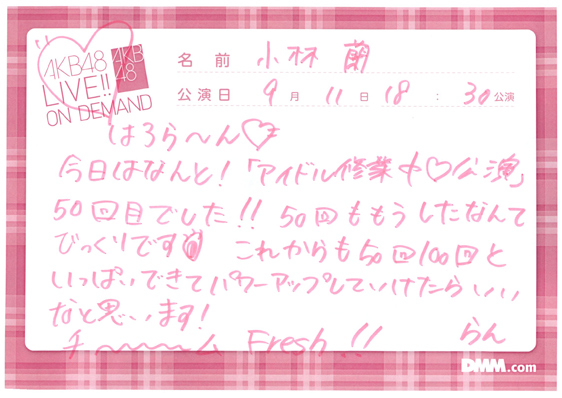 AKB48
LIVE!!
ON DEMAND
AKB
48
名前 小林 蘭
公演日 9月 11日 18:30公演
はろら〜ん♡
今日はなんと!「アイドル修業中♡公演」
50回目でした!! 50回ももうしたなんて
びっくりです これからも50回100回と
いっぱいできてパワーアップしていけたらいい
なと思います!
チ〜〜〜ム Fresh!! らん
DMM.com